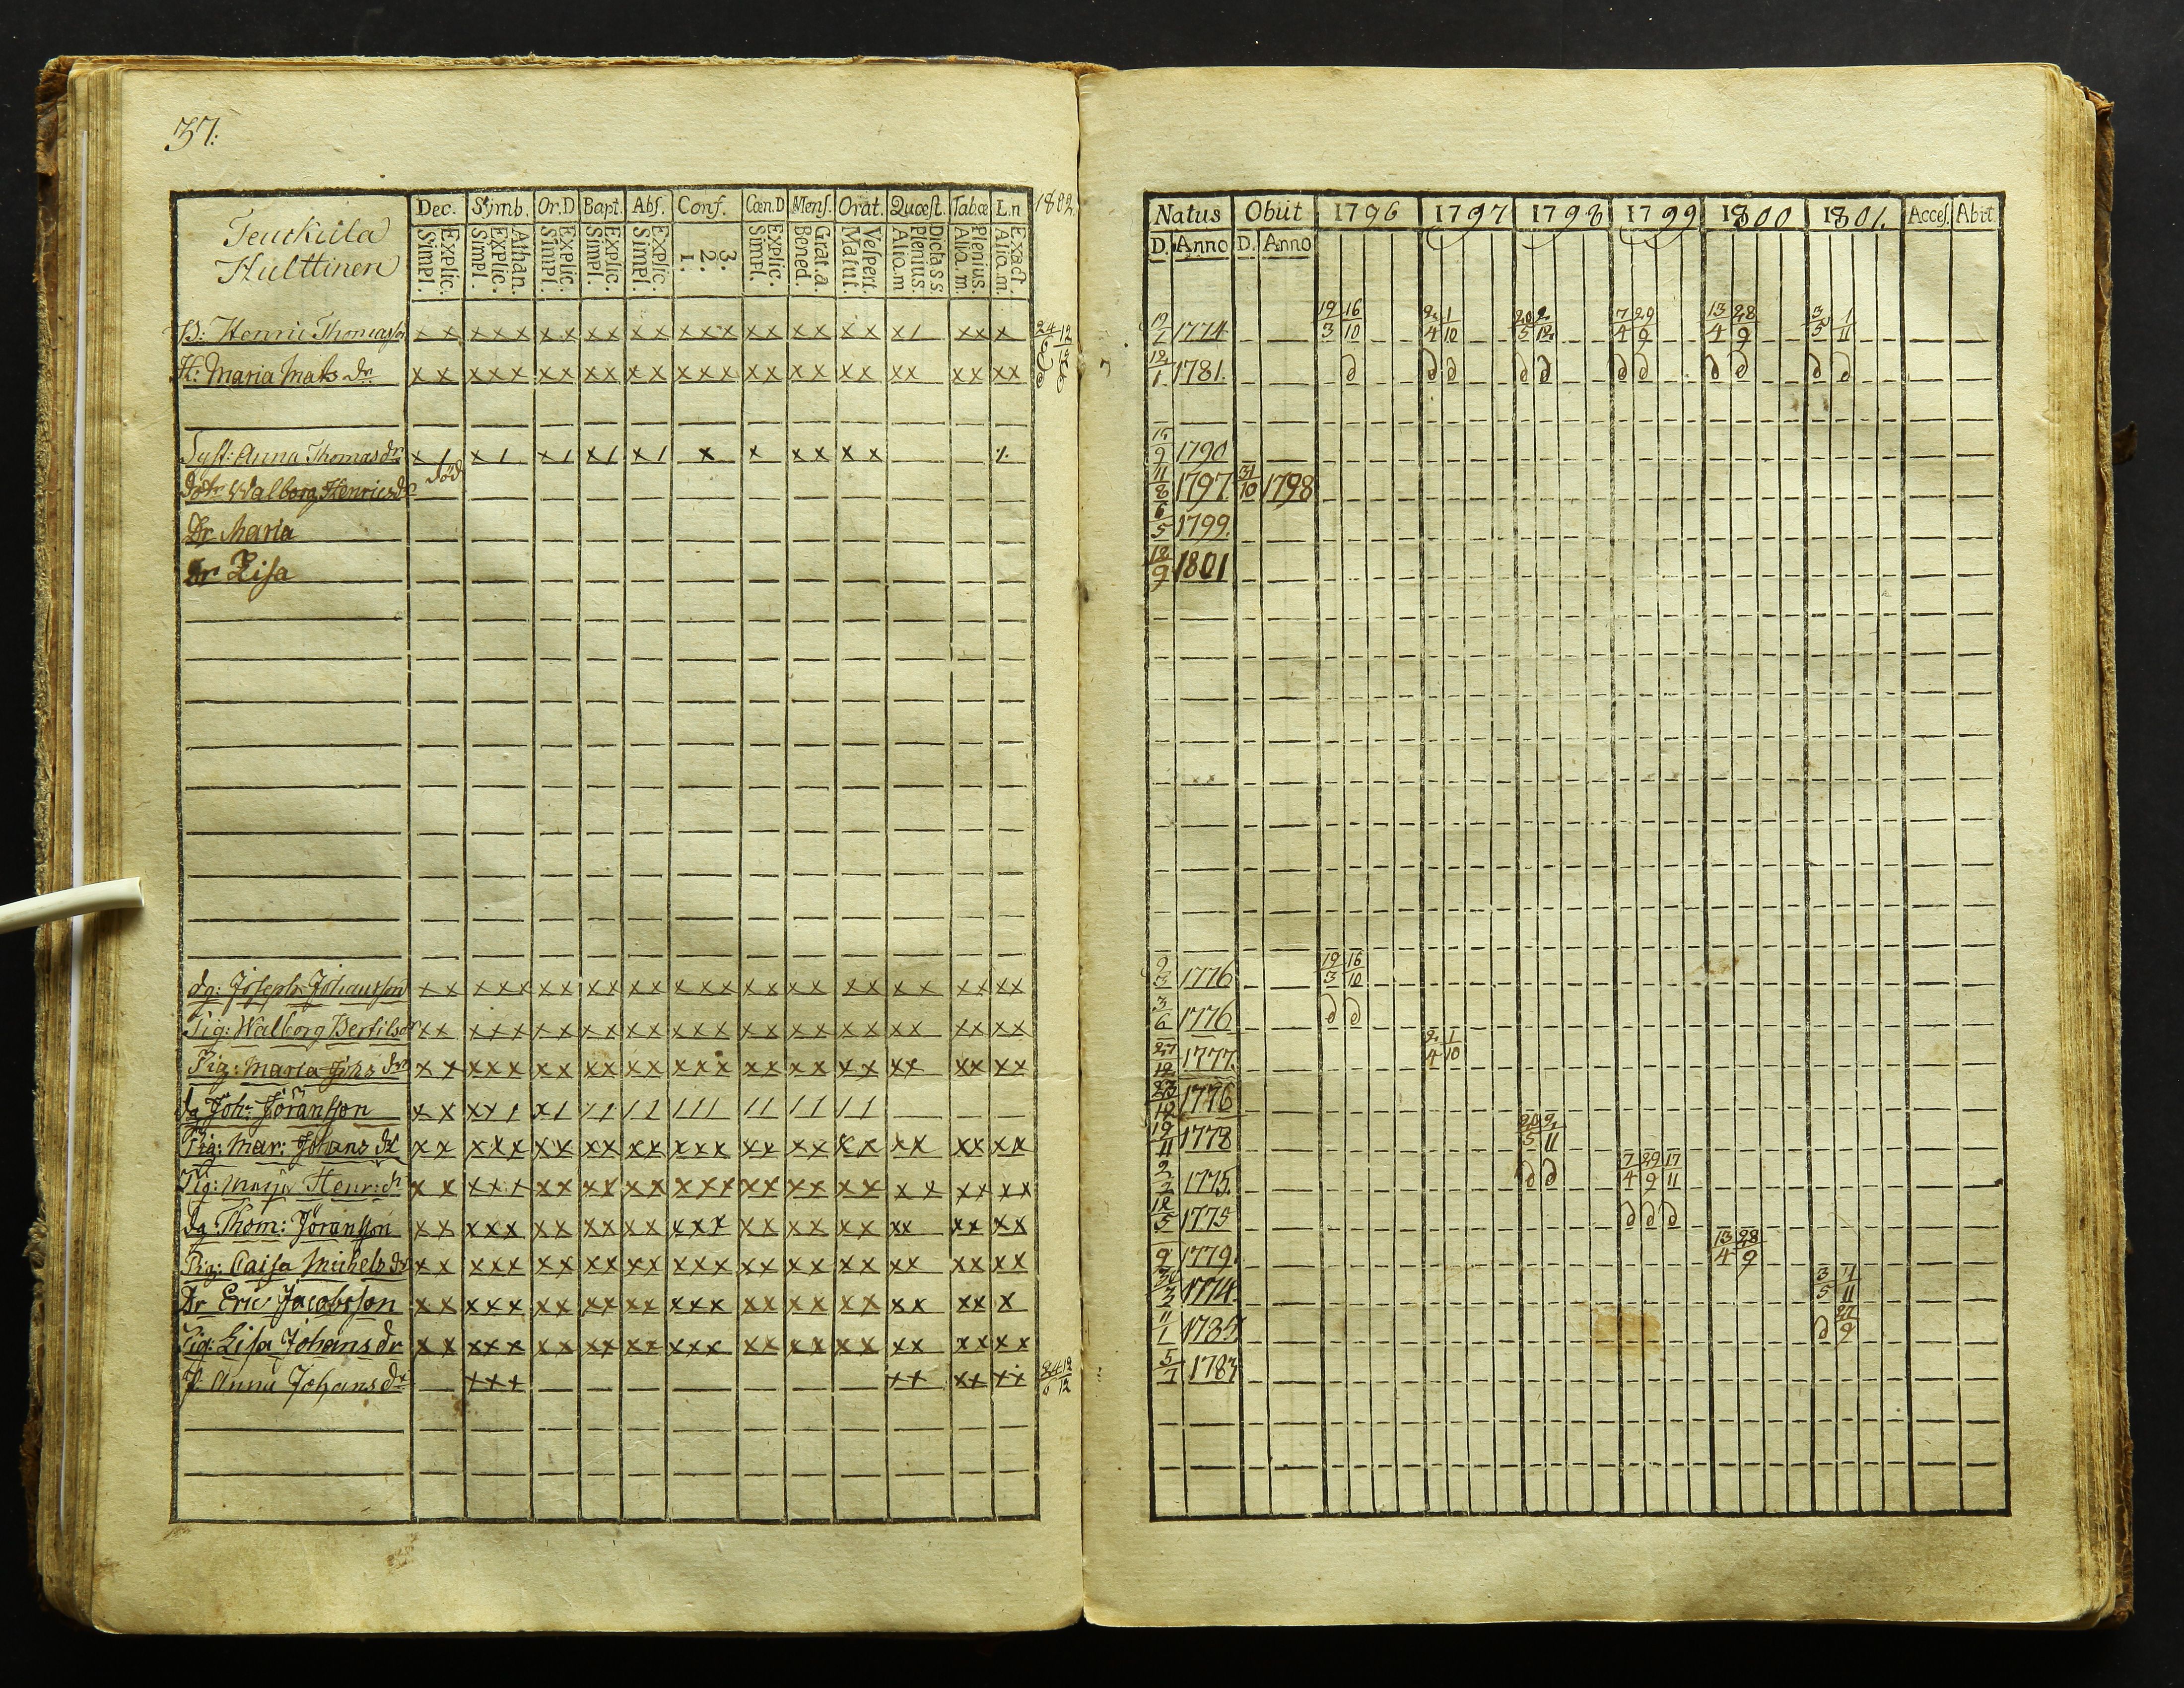 37:
Teuckula
Hulttinen
Dec. Symb. Or.D Bapt. Abs. Conf. Cœn.D Mens. Orat. Quæst. Tab.œ L.n 1802.
Explic. Simpl. Athan. Explic. Simpl. Explic. Simpl. Explic. Simpl. Explic. Simpl. 3. 2. 1. Explic. Simpl. Grat.a. Bened. Vespert. Matut. Dicta s.s. Plenius. Alio.m Plenius. Alio.m. Exact. Alio.m.
B: Henric Thomasson x x x x x x x x x x x x x x x x x x x x x 1 x x x x 24/6 12/12
H: Maria Mats dr x x x x x x x x x x x x x x x x x x x x x x x x x x
Syst: Anna Thomasdr x 1 x 1 x 1 x 1 x 1 x x x x x x
Dotr Walborg Henricsdr död
Dr Maria
Dr Lisa
dg: Joseph Johansson x x x x x x x x x x x x x x x x x x x x x x x x x x
Pig: Walborg Bertilsdr x x x x x x x x x x x x x x x x x x x x x x x x x x
Pig: Maria Johs dr x x x x x x x x x x x x x x x x x x x x x x x x x x
dg Joh: Jöransson x x x x 1 x 1 / / / / / / / / / / / / /
Pig: Mar: Johans dr x x x x x x x x x x x x x x x x x x x x x x x x x x
Pig: Maja Henr: dr x x x x x x x x x x x x x x x x x x x x x x x x x x
dg: Thom: Jöransson x x x x x x x x x x x x x x x x x x x x x x x x x x
Pig: Caisa Michels dr x x x x x x x x x x x x x x x x x x x x x x x x x x
Dr Eric Jacobsson x x x x x x x x x x x x x x x x x x x x x x x x x
Pig: Lisa Johans dr x x x x x x x x x x x x x x x x x x x x x x x x x x
P: Anna Johans dr x x x x x x x x x 24/6 12/12
Natus Obiit 1796 1797 1798 1799 1800 1801. Acces. Abit.
D. Anno D. Anno
1774 19/3 16/10 2/4 1/10 20/5 2/12 7/4 29/9 13/4 28/9 3/5 1/11
12/1 1781. d d d d d d d d d d d
1790
11/8 1797 31/10 1798
6/5 1799.
12/9 1801
9/3 1776 19/3 16/10
3/6 1776 d d
27/12 1777. 2/4 1/10
1776
19/11 1778 20/5 2/11
2/2 1775. d d 7/4 29/9 17/11
12/5 1775 d d d
9 1779. 13/4 28/9
1774. 3/5 1/11
11/1 1785 d 27/9
5/7 1783